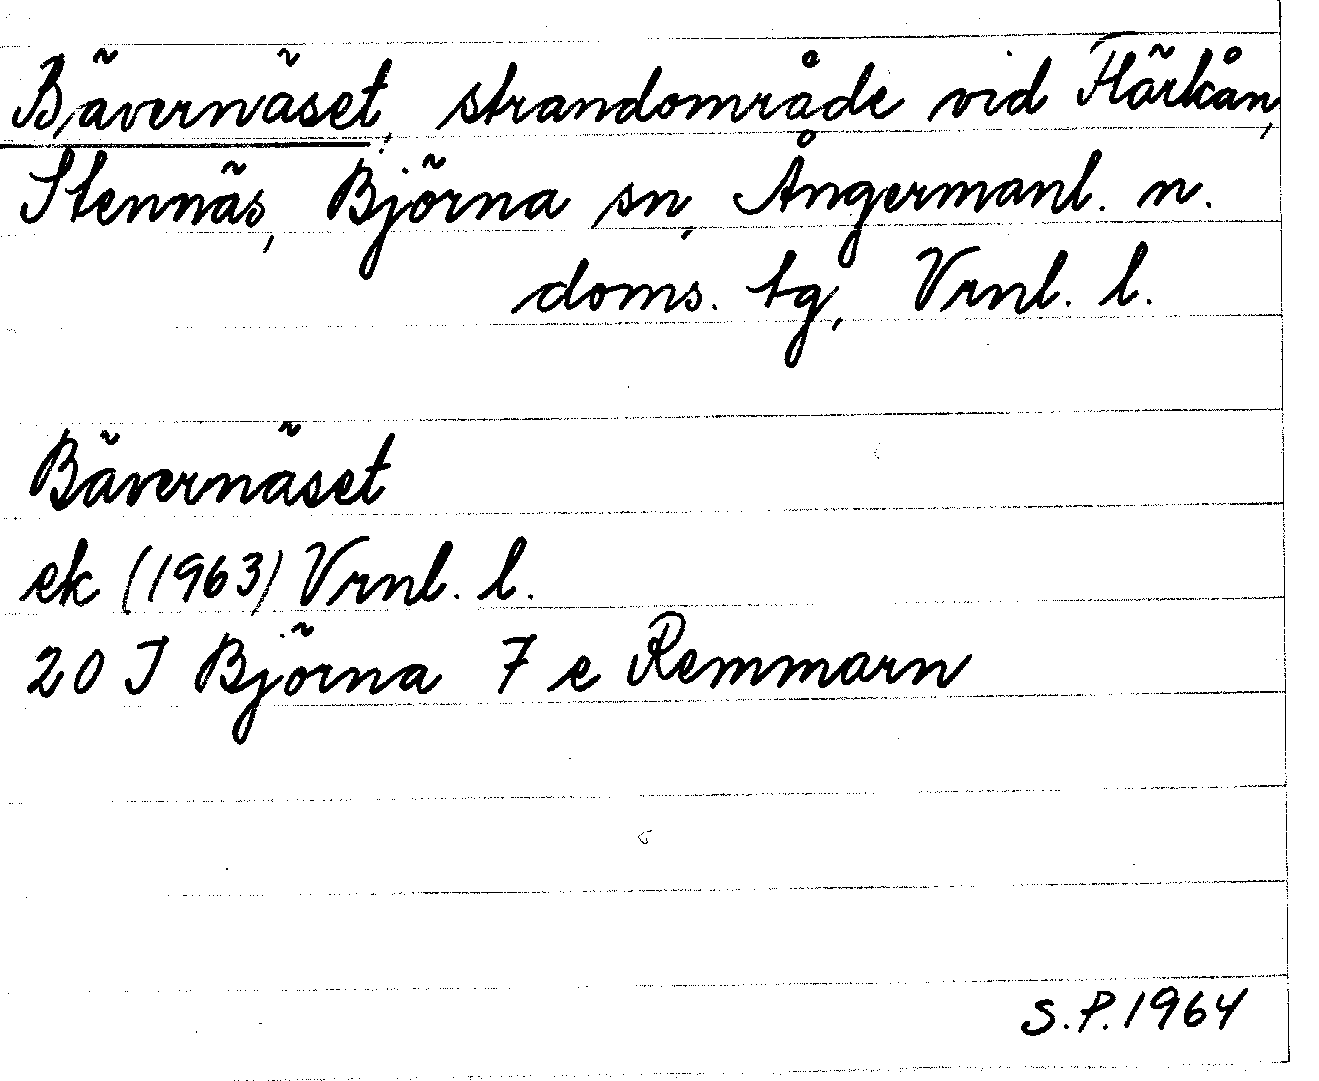 Bävernäset, strandområde vid Flärkån,
Stennäs, Björna sn, Ångermanl. n.
doms. tg, Vrnl. l.
Bävernäset
ek (1963) Vrnl. l.
20 J Björna 7 e Remmarn
S.P. 1964